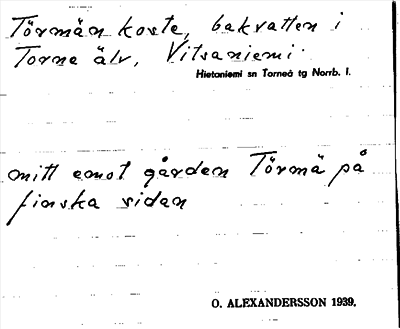 Törmän koste, bakvatten i
Torne älv, Vitsaniemi.
Hietaniemi sn Torneå tg Norrb. l.
mitt emot gården Törmä på
finska sidan
O. ALEXANDERSSON 1939.